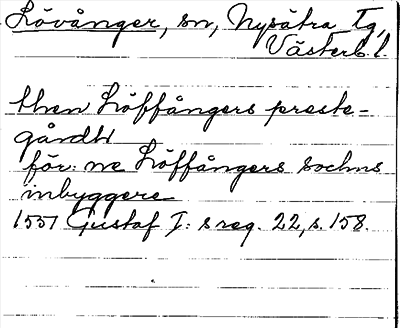 Lövånger, sn, Nysätra Tg,
Västerb. l.
then Löffångers preste-
gårdh
för:ne Löffångers sochns
inbyggere
1551 Gustaf I:s reg. 22, s. 158.